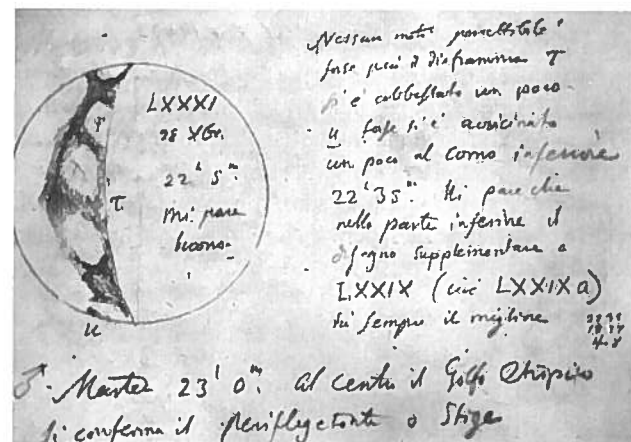 LXXXI
28 Xbr.
22h 5m.
Mi pare
buono.
φ
τ
u
Nessun moto percettibile
forse però il diaframma τ
si è un poco
u forse si è avvicinato
un poco al corno inferiore
22h 35m. Mi pare che
nella parte inferiore il
disegno supplementare a
LXXIX (cioè LXXIX a)
sia sempre il migliore
♂. Marte 23h 0m. al centro il Golfo
si conferma il Periflegetonte o Stige